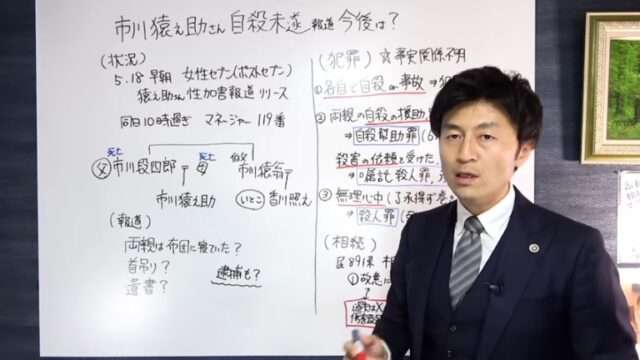 市川猿之助さん 自殺未遂 報道 今後は?
(状況)
5.18 早朝 女性セブン(ポストセブン)
猿之助さん 性加害報道 リリース
同日10時過ぎ マネージャー 119番
死亡
死亡
父 市川段四郎
母
市川猿翁
市川猿之助
いとこ 香川照之
(報道)
両親は布団に寝ていた?
首吊り?
遺書?
逮捕も?
(犯罪) 事実関係不明
①各自で自殺 or 事故 ⇒
②両親の自殺の援助
⇒ 自殺幇助罪
殺害の依頼を受けた
⇒ 嘱託殺人罪
③無理心中
⇒ 殺人罪
(相続)
民891条
①故意に